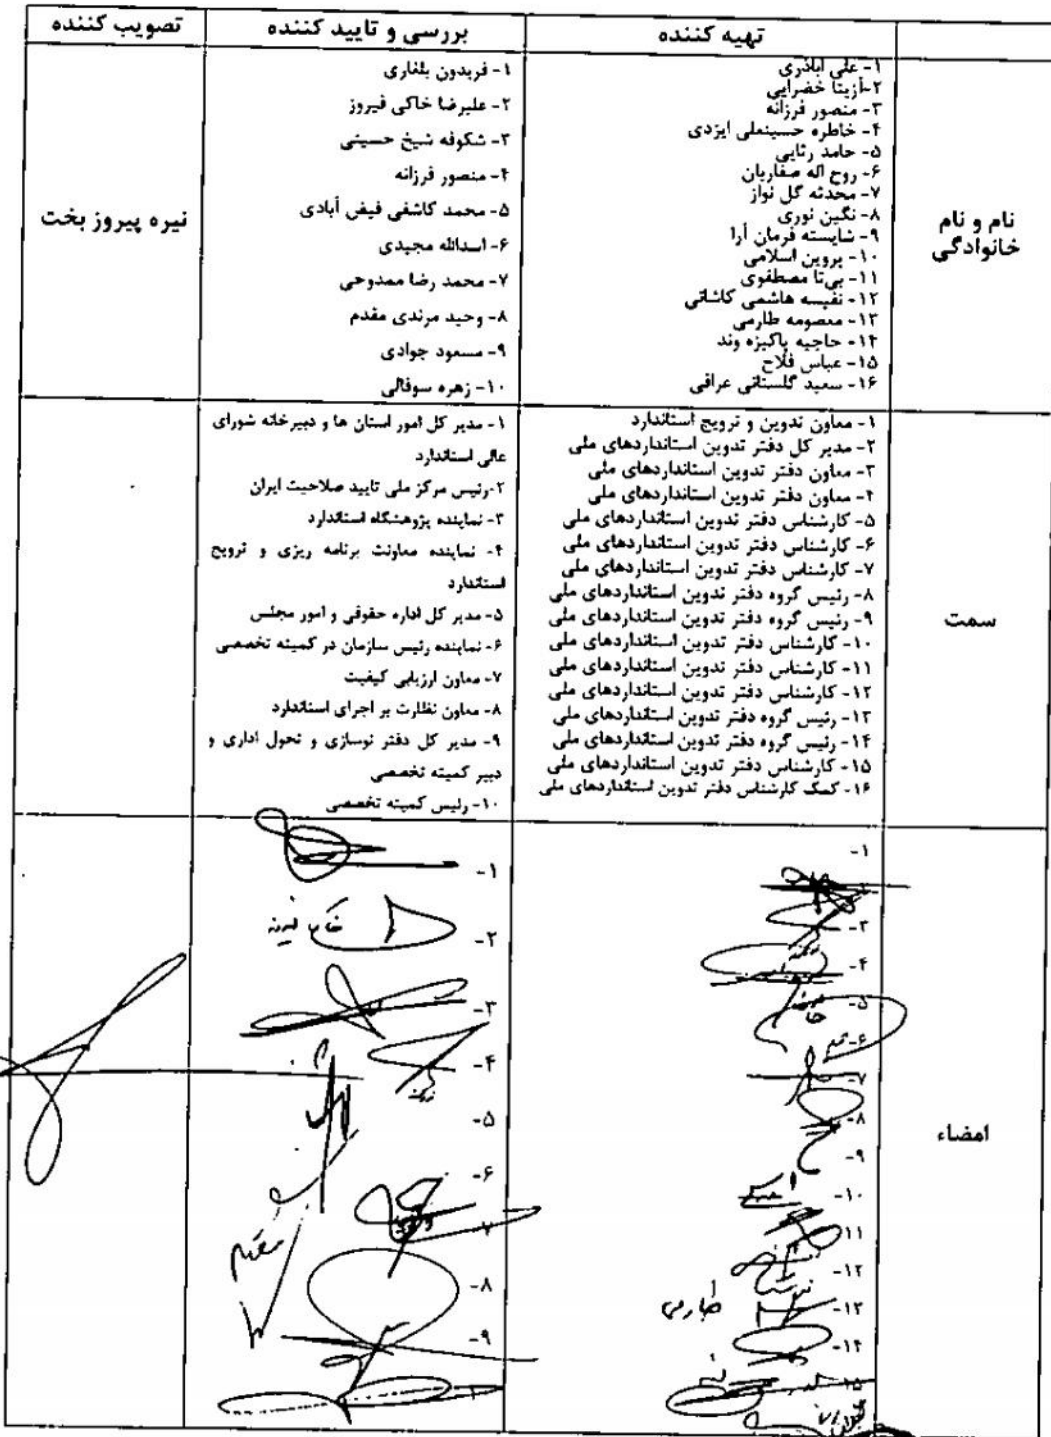 تهیه کننده
بررسی و تایید کننده
تصویب کننده
نام و نام
خانوادگی
۱- علی اباذری
۲- آزیتا خضرایی
۳- منصور فرزانه
۴- خاطره حسینعلی ایزدی
۵- حامد رثایی
۶- روح اله صفاریان
۷- محدثه گل نواز
۸- نگین نوری
۹- شایسته فرمان آرا
۱۰- پروین اسلامی
۱۱- بی‌تا مصطفوی
۱۲- نفیسه هاشمی کاشانی
۱۳- معصومه طارمی
۱۴- حاجیه پاکیزه وند
۱۵- عباس فلاح
۱۶- سعید گلستانی عراقی
۱- فریدون بلغاری
۲- علیرضا خاکی فیروز
۳- شکوفه شیخ حسینی
۴- منصور فرزانه
۵- محمد کاشفی فیض آبادی
۶- اسدالله مجیدی
۷- محمد رضا ممدوحی
۸- وحید مرندی مقدم
۹- مسعود جوادی
۱۰- زهره سوفالی
نیره پیروز بخت
سمت
۱- معاون تدوین و ترویج استاندارد
۲- مدیر کل دفتر تدوین استانداردهای ملی
۳- معاون دفتر تدوین استانداردهای ملی
۴- معاون دفتر تدوین استانداردهای ملی
۵- کارشناس دفتر تدوین استانداردهای ملی
۶- کارشناس دفتر تدوین استانداردهای ملی
۷- کارشناس دفتر تدوین استانداردهای ملی
۸- رئیس گروه دفتر تدوین استانداردهای ملی
۹- رئیس گروه دفتر تدوین استانداردهای ملی
۱۰- کارشناس دفتر تدوین استانداردهای ملی
۱۱- کارشناس دفتر تدوین استانداردهای ملی
۱۲- کارشناس دفتر تدوین استانداردهای ملی
۱۳- رئیس گروه دفتر تدوین استانداردهای ملی
۱۴- رئیس گروه دفتر تدوین استانداردهای ملی
۱۵- کارشناس دفتر تدوین استانداردهای ملی
۱۶- کمک کارشناس دفتر تدوین استانداردهای ملی
۱- مدیر کل امور استان ها و دبیرخانه شورای
عالی استاندارد
۲- رئیس مرکز ملی تایید صلاحیت ایران
۳- نماینده پژوهشگاه استاندارد
۴- نماینده معاونت برنامه ریزی و ترویج
استاندارد
۵- مدیر کل اداره حقوقی و امور مجلس
۶- نماینده رئیس سازمان در کمیته تخصصی
۷- معاون ارزیابی کیفیت
۸- معاون نظارت بر اجرای استاندارد
۹- مدیر کل دفتر نوسازی و تحول اداری و
دبیر کمیته تخصصی
۱۰- رئیس کمیته تخصصی
امضاء
۱-
۳-
۴-
۵-
۶-
۷-
۸-
۹-
۱۰-
۱۱
۱۲-
۱۳- طارمی
۱۴-
۱۵
۱-
۲- خاکی فیروز
۳-
۴-
۵-
۶-
۷
۸-
۹-
مقدم